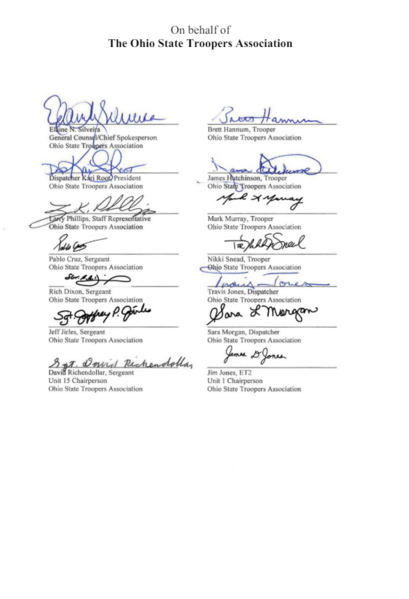 On behalf of
The Ohio State Troopers Association
Elaine N. Silveira
General Counsel/Chief Spokesperson
Ohio State Troopers Association
Dispatcher Kari Root, President
Ohio State Troopers Association
Larry Phillips, Staff Representative
Ohio State Troopers Association
Pablo Cruz, Sergeant
Ohio State Troopers Association
Rich Dixon, Sergeant
Ohio State Troopers Association
Sgt Jeffrey P. Jirles
Jeff Jirles, Sergeant
Ohio State Troopers Association
Sgt. David Richendollar
David Richendollar, Sergeant
Unit 15 Chairperson
Ohio State Troopers Association
Brett Hannum
Brett Hannum, Trooper
Ohio State Troopers Association
James Hutchinson, Trooper
Ohio State Troopers Association
Mark Murray, Trooper
Ohio State Troopers Association
Nikki Snead, Trooper
Ohio State Troopers Association
Travis Jones
Travis Jones, Dispatcher
Ohio State Troopers Association
Sara L Morgan
Sara Morgan, Dispatcher
Ohio State Troopers Association
James D Jones
Jim Jones, ET2
Unit 1 Chairperson
Ohio State Troopers Association